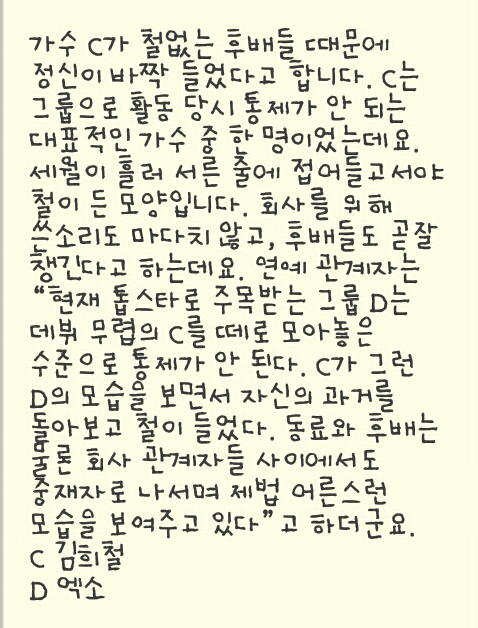 가수 C가 철없는 후배들 때문에
정신이 바짝 들었다고 합니다. C는
그룹으로 활동 당시 통제가 안 되는
대표적인 가수 중 한 명이었는데요.
세월이 흘러 서른 줄에 접어들고서야
철이 든 모양입니다. 회사를 위해
쓴소리도 마다치 않고, 후배들도 곧잘
챙긴다고 하는데요. 연예 관계자는
“현재 톱스타로 주목받는 그룹 D는
데뷔 무렵의 C를 떼로 모아놓은
수준으로 통제가 안 된다. C가 그런
D의 모습을 보면서 자신의 과거를
돌아보고 철이 들었다. 동료와 후배는
물론 회사 관계자들 사이에서도
중재자로 나서며 제법 어른스런
모습을 보여주고 있다”고 하더군요.
C 김희철
D 엑소